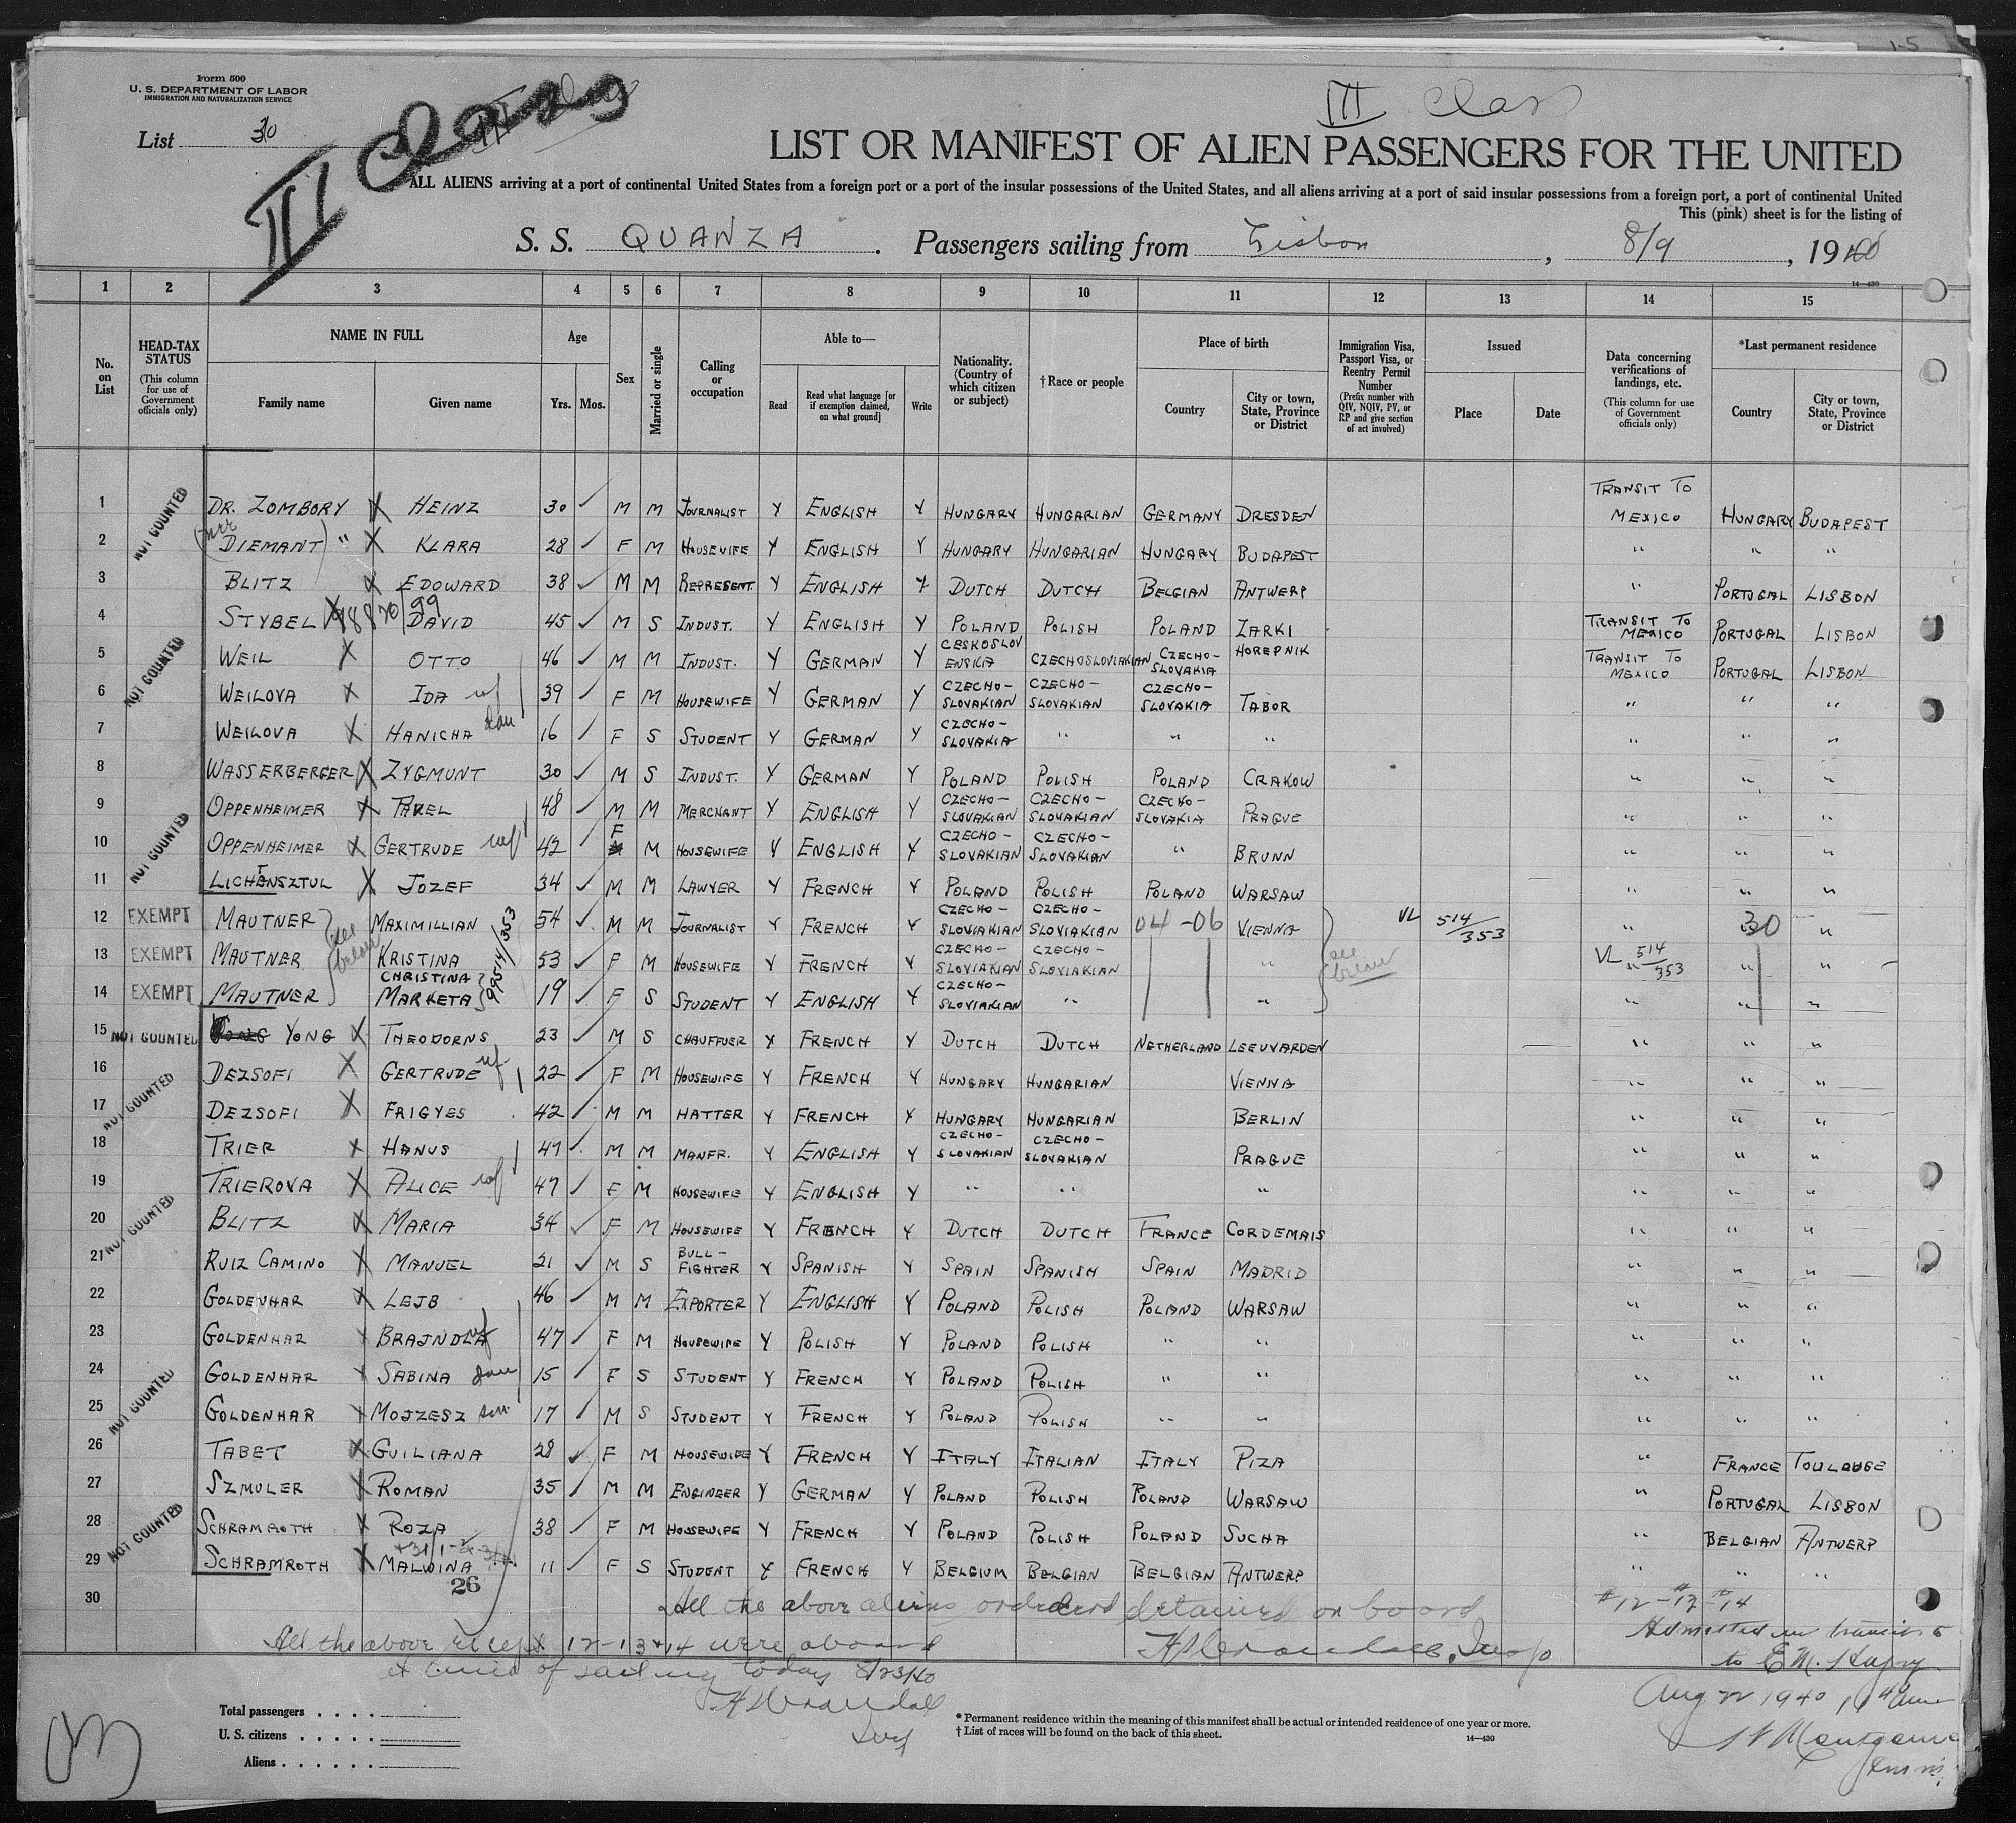 1-5
Form 500
U. S. DEPARTMENT OF LABOR
IMMIGRATION AND NATURALIZATION SERVICE
List 30
III Class
III Class
LIST OR MANIFEST OF ALIEN PASSENGERS FOR THE UNITED
ALL ALIENS arriving at a port of continental United States from a foreign port or a port of the insular possessions of the United States, and all aliens arriving at a port of said insular possessions from a foreign port, a port of continental United
This (pink) sheet is for the listing of
S. S. QUANZA. Passengers sailing from Lisbon, 8/9, 1940
14—430
1 2 3 4 5 6 7 8 9 10 11 12 13 14 15
No. on List
HEAD-TAX STATUS (This column for use of Government officials only)
NAME IN FULL
Family name Given name
Age
Yrs. Mos.
Sex
Married or single
Calling or occupation
Able to—
Read
Read what language [or if exemption claimed, on what ground]
Write
Nationality. (Country of which citizen or subject)
†Race or people
Place of birth
Country
City or town, State, Province or District
Immigration Visa, Passport Visa, or Reentry Permit Number (Prefix number with QIV, NQIV, PV, or RP and give section of act involved)
Issued
Place Date
Data concerning verifications of landings, etc. (This column for use of Government officials only)
*Last permanent residence
Country
City or town, State, Province or District
1 NOT COUNTED DR. ZOMBORY X HEINZ 30 ✓ M M JOURNALIST Y ENGLISH Y HUNGARY HUNGARIAN GERMANY DRESDEN TRANSIT TO MEXICO HUNGARY BUDAPEST
2 (nee DIEMANT) " X KLARA 28 ✓ F M HOUSEVIFE Y ENGLISH Y HUNGARY HUNGARIAN HUNGARY BUDAPEST " " "
3 BLITZ X EDOWARD 38 ✓ M M REPRESENT. Y ENGLISH Y DUTCH DUTCH BELGIAN ANTWERP " PORTUGAL LISBON
4 STYBEL X 98870/99 DAVID 45 ✓ M S INDUST. Y ENGLISH Y POLAND POLISH POLAND ZARKI TRANSIT TO MEXICO PORTUGAL LISBON
5 NOT COUNTED WEIL X OTTO 46 ✓ M M INDUST. Y GERMAN Y CESKOSLOVENSKIA CZECHOSLOVIAKIAN CZECHO-SLOVAKIA HOREPNIK TRANSIT TO MEXICO PORTUGAL LISBON
6 WEILOVA X IDA wf 39 ✓ F M HOUSEWIFE Y GERMAN Y CZECHO-SLOVAKIAN CZECHO-SLOVAKIAN CZECHO-SLOVAKIA TABOR " " "
7 WEILOVA X HANICHA dau 16 ✓ F S STUDENT Y GERMAN Y CZECHO-SLOVAKIA " " " " " "
8 WASSERBERGER X ZYGMUNT 30 ✓ M S INDUST. Y GERMAN Y POLAND POLISH POLAND CRAKOW " " "
9 OPPENHEIMER X PAVEL 48 ✓ M M MERCHANT Y ENGLISH Y CZECHO-SLOVAKIAN CZECHO-SLOVAKIAN CZECHO-SLOVAKIA PRAGUE " " "
10 NOT COUNTED OPPENHEIMER X GERTRUDE wf 42 ✓ F M HOUSEWIFE Y ENGLISH Y CZECHO-SLOVAKIAN CZECHO-SLOVAKIAN " BRUNN " " "
11 LICHTENSZTUL X JOZEF 34 ✓ M M LAWYER Y FRENCH Y POLAND POLISH POLAND WARSAW " " "
12 EXEMPT MAUTNER MAXIMILLIAN 54 ✓ M M JOURNALIST Y FRENCH Y CZECHO-SLOVIAKIAN CZECHO-SLOVIAKIAN 04-06 VIENNA VL 514/353 " 30 "
13 EXEMPT MAUTNER see below KRISTINA 53 ✓ F M HOUSEWIFE Y FRENCH Y CZECHO-SLOVIAKIAN CZECHO-SLOVIAKIAN " see below VL 514/353 " " "
14 EXEMPT MAUTNER CHRISTINA MARKETA 99514/353 19 ✓ F S STUDENT Y ENGLISH Y CZECHO-SLOVIAKIAN " " " "
15 NOT COUNTED YONG X THEODORNS 23 ✓ M S CHAUFFUER Y FRENCH Y DUTCH DUTCH NETHERLAND LEEUVARDEN " " "
16 DEZSOFI X GERTRUDE wf 22 ✓ F M HOUSEWIFE Y FRENCH Y HUNGARY HUNGARIAN VIENNA " " "
17 NOT COUNTED DEZSOFI X FRIGYES 42 ✓ M M HATTER Y FRENCH Y HUNGARY HUNGARIAN BERLIN " " "
18 TRIER X HANUS 47 ✓ M M MANFR. Y ENGLISH Y CZECHO-SLOVAKIAN CZECHO-SLOVAKIAN PRAGUE " " "
19 TRIEROVA X ALICE wf 47 ✓ F M HOUSEWIFE Y ENGLISH Y " " " " " "
20 NOT COUNTED BLITZ X MARIA 34 ✓ F M HOUSEWIFE Y FRENCH Y DUTCH DUTCH FRANCE CORDEMAIS " " "
21 RUIZ CAMINO X MANUEL 21 ✓ M S BULL-FIGHTER Y SPANISH Y SPAIN SPANISH SPAIN MADRID " " "
22 GOLDENHAR X LEJB 46 ✓ M M EXPORTER Y ENGLISH Y POLAND POLISH POLAND WARSAW " " "
23 GOLDENHAR X BRAJNDLA wf 47 ✓ F M HOUSEWIFE Y POLISH Y POLAND POLISH " " " " "
24 GOLDENHAR X SABINA dau 15 ✓ F S STUDENT Y FRENCH Y POLAND POLISH " " " " "
25 NOT COUNTED GOLDENHAR X MOJZESZ son 17 ✓ M S STUDENT Y FRENCH Y POLAND POLISH " " " " "
26 TABET X GUILIANA 28 ✓ F M HOUSEWIFE Y FRENCH Y ITALY ITALIAN ITALY PIZA " FRANCE TOULOUGE
27 SZMULER X ROMAN 35 ✓ M M ENGINEER Y GERMAN Y POLAND POLISH POLAND WARSAW " PORTUGAL LISBON
28 SCHRAMROTH X ROZA 38 ✓ F M HOUSEWIFE Y FRENCH Y POLAND POLISH POLAND SUCHA " BELGIAN ANTWERP
29 NOT COUNTED SCHRAMROTH X MALWINA 11 ✓ F S STUDENT Y FRENCH Y BELGIUM BELGIAN BELGIAN ANTWERP " " "
26
30 All the above aliens ordered detained on board #12-#13-#14
All the above except 12-13+14 were aboard Admitted in transit
at time of sailing today 8/23/40
Aug 22 1940
Total passengers . . . .
U. S. citizens . . . . .
Aliens . . . . . .
* Permanent residence within the meaning of this manifest shall be actual or intended residence of one year or more.
† List of races will be found on the back of this sheet.
14—430